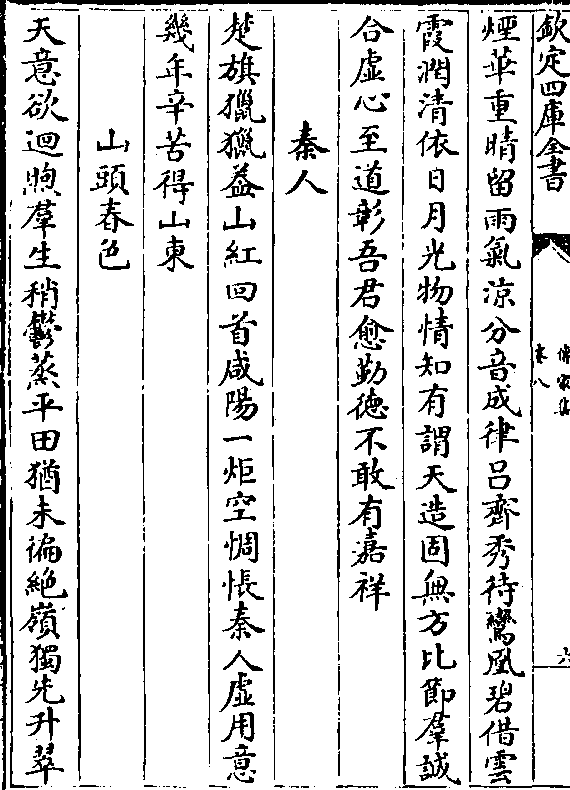 欽定四庫全書
傳家集
卷八
六
煙華重晴留雨氣涼分音成律呂齊秀待鸞凰碧借雲
霞潤清依日月光物情知有謂天造固無方比節羣誠
合虛心至道彰吾君愈勤德不敢有嘉祥
秦人
楚旗獵獵益山紅回首咸陽一炬空惆悵秦人虛用意
幾年辛苦得山東
山頭春色
天意欲迴煦羣生稍鬱蒸平田猶未徧絶嶺獨先升翠